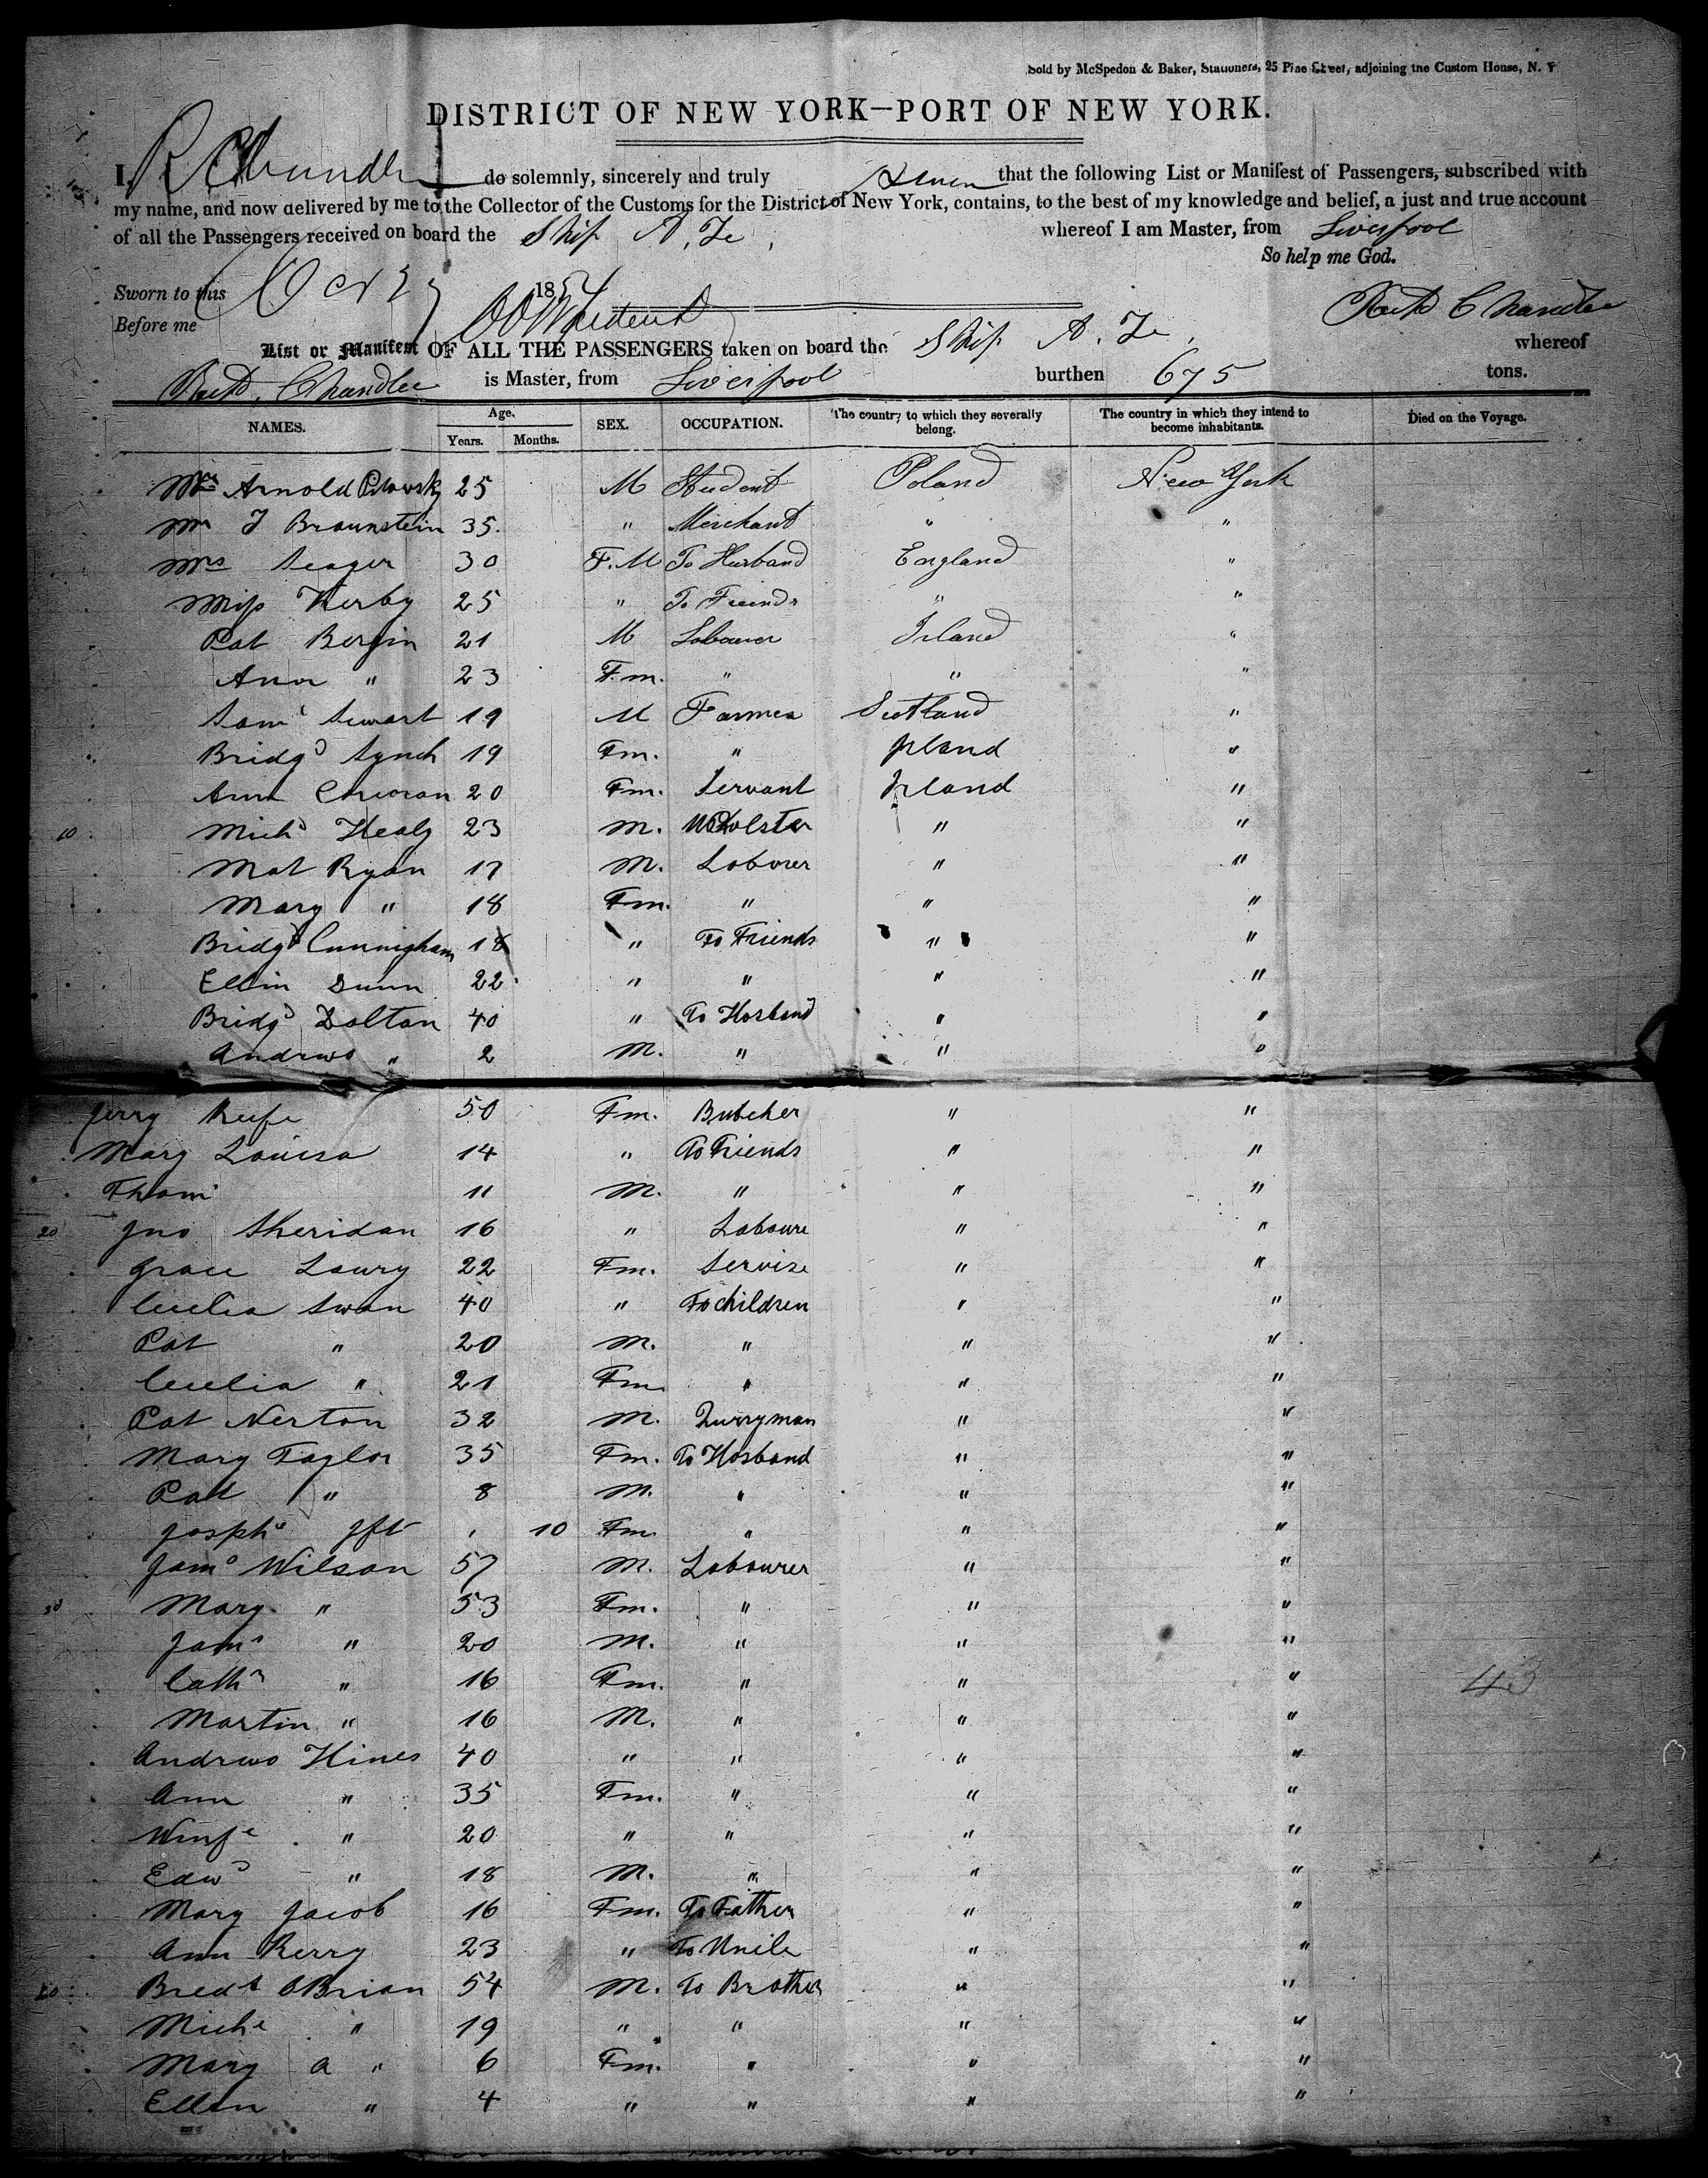 Sold by McSpedon & Baker, Stationers, 25 Pine Street, adjoining the Custom House, N. Y
DISTRICT OF NEW YORK—PORT OF NEW YORK.
I, do solemnly, sincerely and truly that the following List or Manifest of Passengers, subscribed with
my name, and now delivered by me to the Collector of the Customs for the District of New York, contains, to the best of my knowledge and belief, a just and true account
of all the Passengers received on board the Ship A. Z. whereof I am Master, from Liverpool
So help me God.
Sworn to this Oct 185
Before me
List or Manifest OF ALL THE PASSENGERS taken on board the Ship A. Z. whereof
Chandler is Master, from Liverpool burthen 675 tons.
NAMES. Age. Years. Months. SEX. OCCUPATION. The country to which they severally belong. The country in which they intend to become inhabitants. Died on the Voyage.
Mr Arnold 25 M Student Poland New York
Mr J Braunstein 35 " Merchant " "
Mrs Seager 30 F.M To Husband England "
Miss Kerby 25 " To Friends " "
Pat Bergin 21 M Labourer Irland "
Ann " 23 F.m. " " "
Saml Stewart 19 M Farmer Scotland "
Bridgt Lynch 19 Fm. " Irland "
Ann Corcoran 20 Fm. Servant Irland "
10 Michl Healy 23 m. " "
Mat Ryan 17 M. Laborer " "
Mary " 18 Fm. " " "
Bridgt Cunnigham 18 " To Friends " "
Ellin Dunn 22 " " " "
Bridgt Dolton 40 " To Hosband " "
Andrws " 2 M. " " "
Jerry Keefe 50 Fm. Butcher " "
Mary Louisa 14 " To Friends " "
Thom 11 M. " " "
20 Jno Sheridan 16 " Laboure " "
Grace Lowry 22 Fm. Servise " "
Cecelia Swan 40 " To children " "
Pat " 20 M. " " "
Cecelia " 21 Fm " " "
Pat Nerton 32 M. Qurryman " "
Mary Taylor 35 Fm. To Hosband " "
Patt " 8 M. " " "
Josph Ift 10 Fm " " "
Jams Wilson 57 M. Labourer " "
30 Mary " 53 Fm. " " "
Jams " 20 M. " " "
Cath " 16 Fm. " " "
43
Martin " 16 M. " " "
Andrws Hines 40 " " " "
Ann " 35 Fm. " " "
Winfe " 20 " " " "
Edwd " 18 M. " " "
Mary Jacob 16 Fm. To Father " "
Ann Kerry 23 " To Uncle " "
40 OBrian 54 M. To Brother " "
Miche " 19 " " " "
Mary a " 6 Fm. " " "
Ellen " 4 " " " "